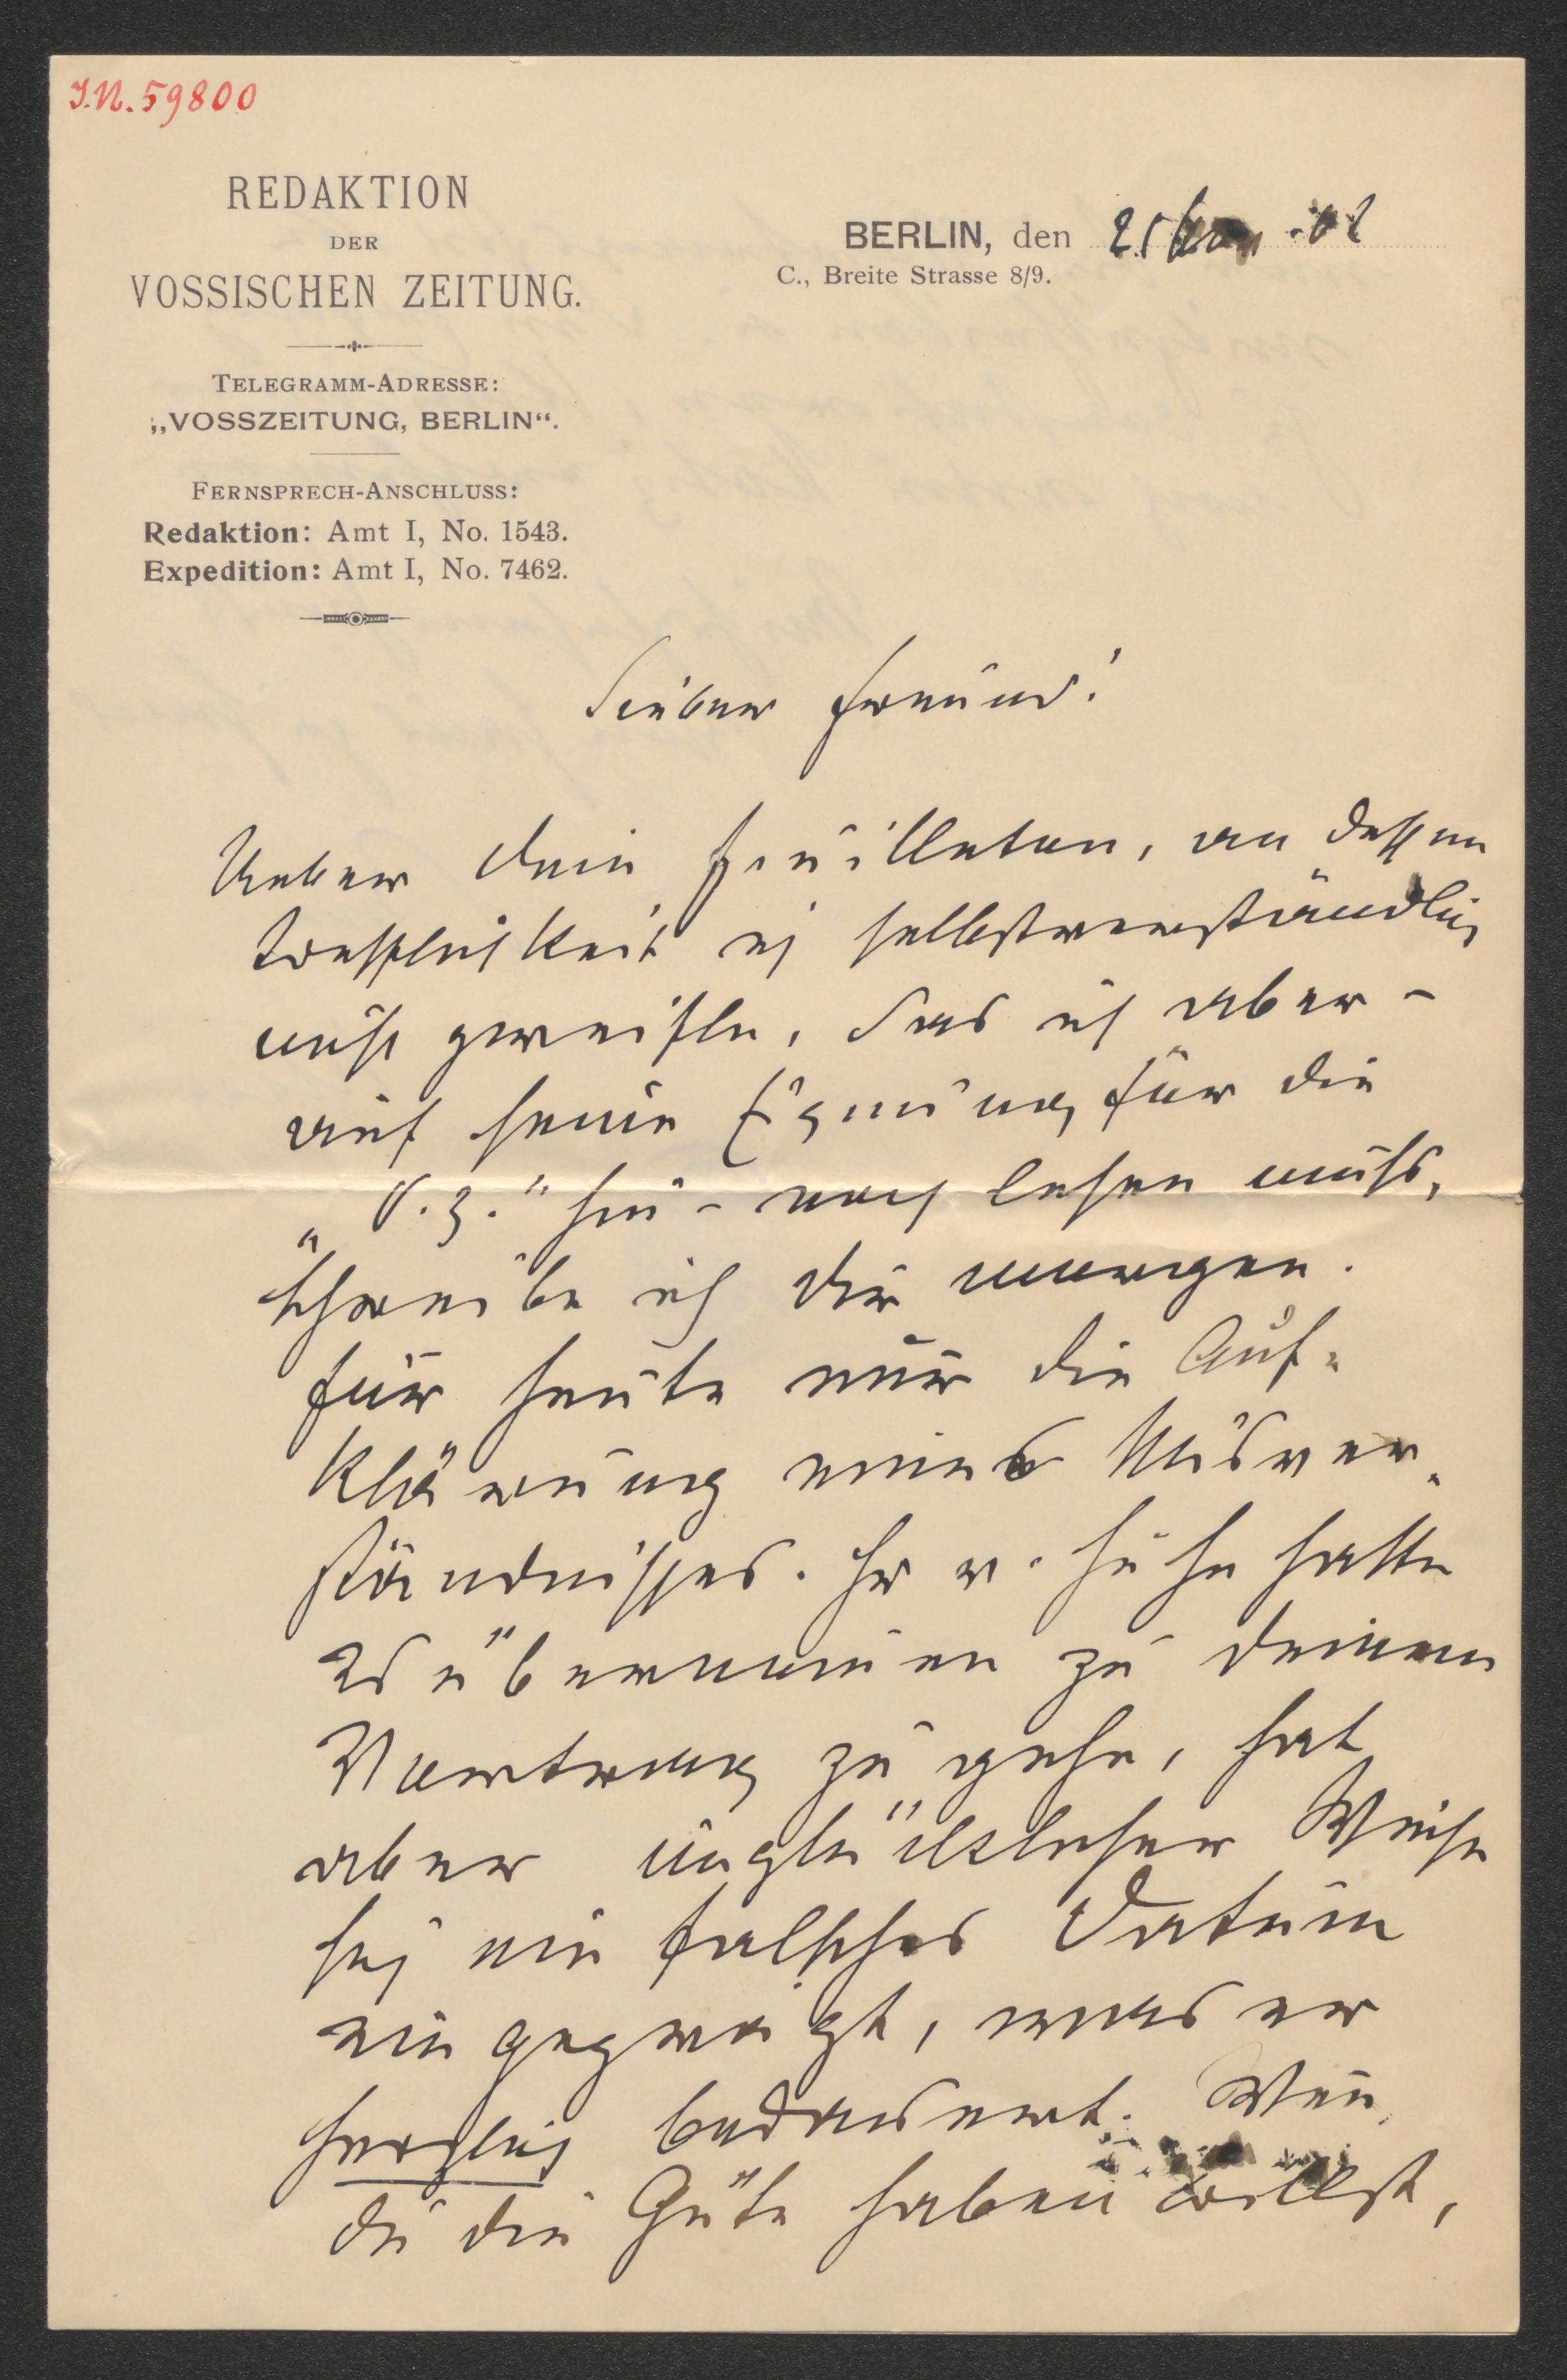 I.N. 59800
REDAKTION
DER
VOSSISCHEN ZEITUNG.
TELEGRAMM-ADRESSE:
„VOSSZEITUNG, BERLIN“.
FERNSPRECH-ANSCHLUSS:
Redaktion: Amt I, No. 1543.
Expedition: Amt I, No. 7462.
BERLIN, den 25
C., Breite Strasse 8/9.
Lieber Freund!
Ueber dein Feuilleton, an dessen
Trefflichkeit ich selbstverständlich
nicht zweifle, das ich aber –
auf seine Eignung für die
„V. Z.“ hin – noch lesen muß,
schreibe ich dir morgen.
Für heute nur die Auf-
klärung eines Misver-
ständnisses. Hr v. hatte
es übernommen zu deinem
Vortrag zu gehen, hat
aber unglücklicher Weise
sich ein falsches Datum
eingeprägt, was er
herzlich bedauert. Wenn
du die Güte haben willst,